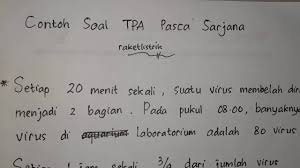 Contoh Soal TPA Pasca Sarjana
raketlistrik
* Setiap 20 menit sekali, suatu virus membelah diri
menjadi 2 bagian. Pada pukul 08.00, banyaknya
virus di aquarium laboratorium adalah 80 virus
jam sekali 3/4 dari jumlah virus